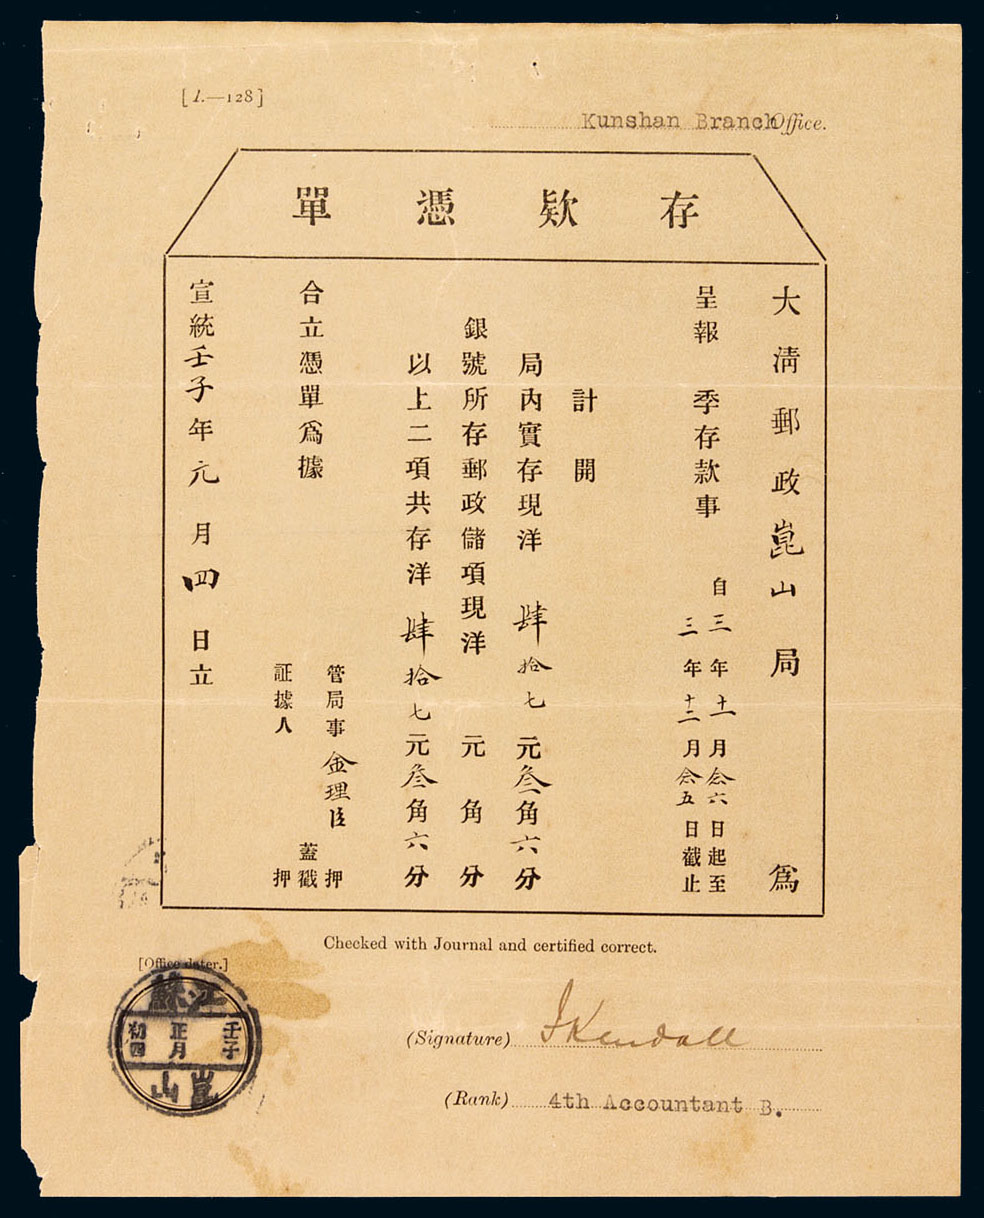 [I.—128]
Kunshan Branch Office.
存欵憑單
大淸郵政崑山局爲
呈報　季存款事　自三年十一月廿六日起至
三年十二月廿五日截止
計開
局內實存現洋肆拾七元叁角六分
銀號所存郵政儲項現洋　元　角　分
以上二項共存洋肆拾七元叁角六分
合立憑單爲據
管局事　金理臣　押
蓋戳
証據人　押
宣統壬子年元月四日立
Checked with Journal and certified correct.
[Office dater.]
江蘇
壬子
正月
初四
崑山
(Signature) J Kendall
(Rank) 4th Accountant B.